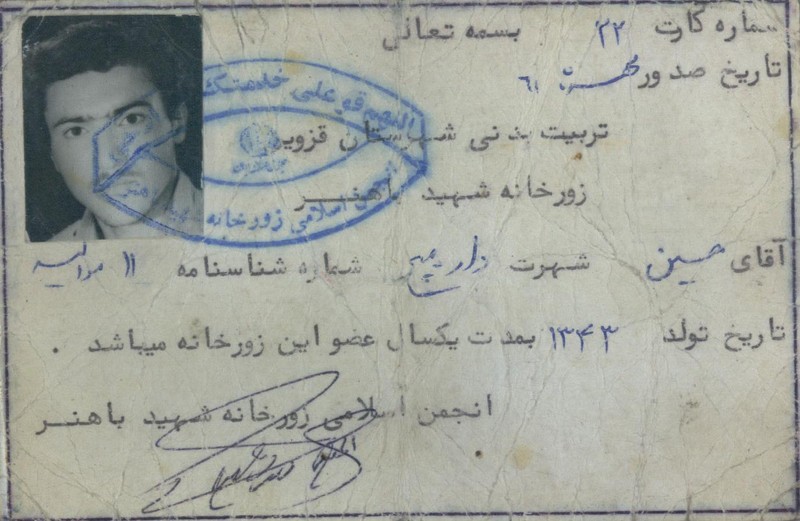 بسمه تعالی
شماره کارت ۲۲
تاریخ صدور ۶۱
تربیت بدنی شهرستان قزوین
زورخانه شهید باهنر
آقای حسین شهرت شماره شناسنامه ۱۱
تاریخ تولد ۱۳۴۳ بمدت یکسال عضو این زورخانه میباشد .
انجمن اسلامی زورخانه شهید باهنر
اللهم قو علی خدمتک
انجمن اسلامی زورخانه شهید باهنر